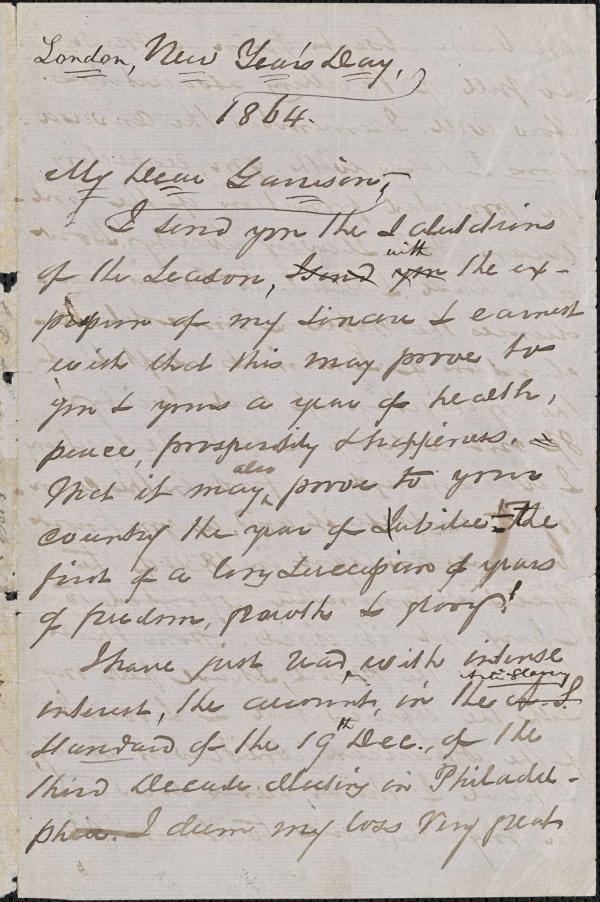 London, New Year's Day,
1864.
My Dear Garrison,
I send you the Salutations
of the Season, I send you with the ex-
pression of my sincere & earnest
wish that this may prove to
you & yours a year of health,
peace, prosperity & happiness. –
That it may also prove to your
country the year of Jubilee – the
first of a long succession of years
of freedom, growth & glory!
I have just read, with intense
interest, the accounts, in the A. S. Anti-Slavery
Standard of the 19th Dec., of the
third Decade Meeting in Philadel-
phia. I deem my loss very great